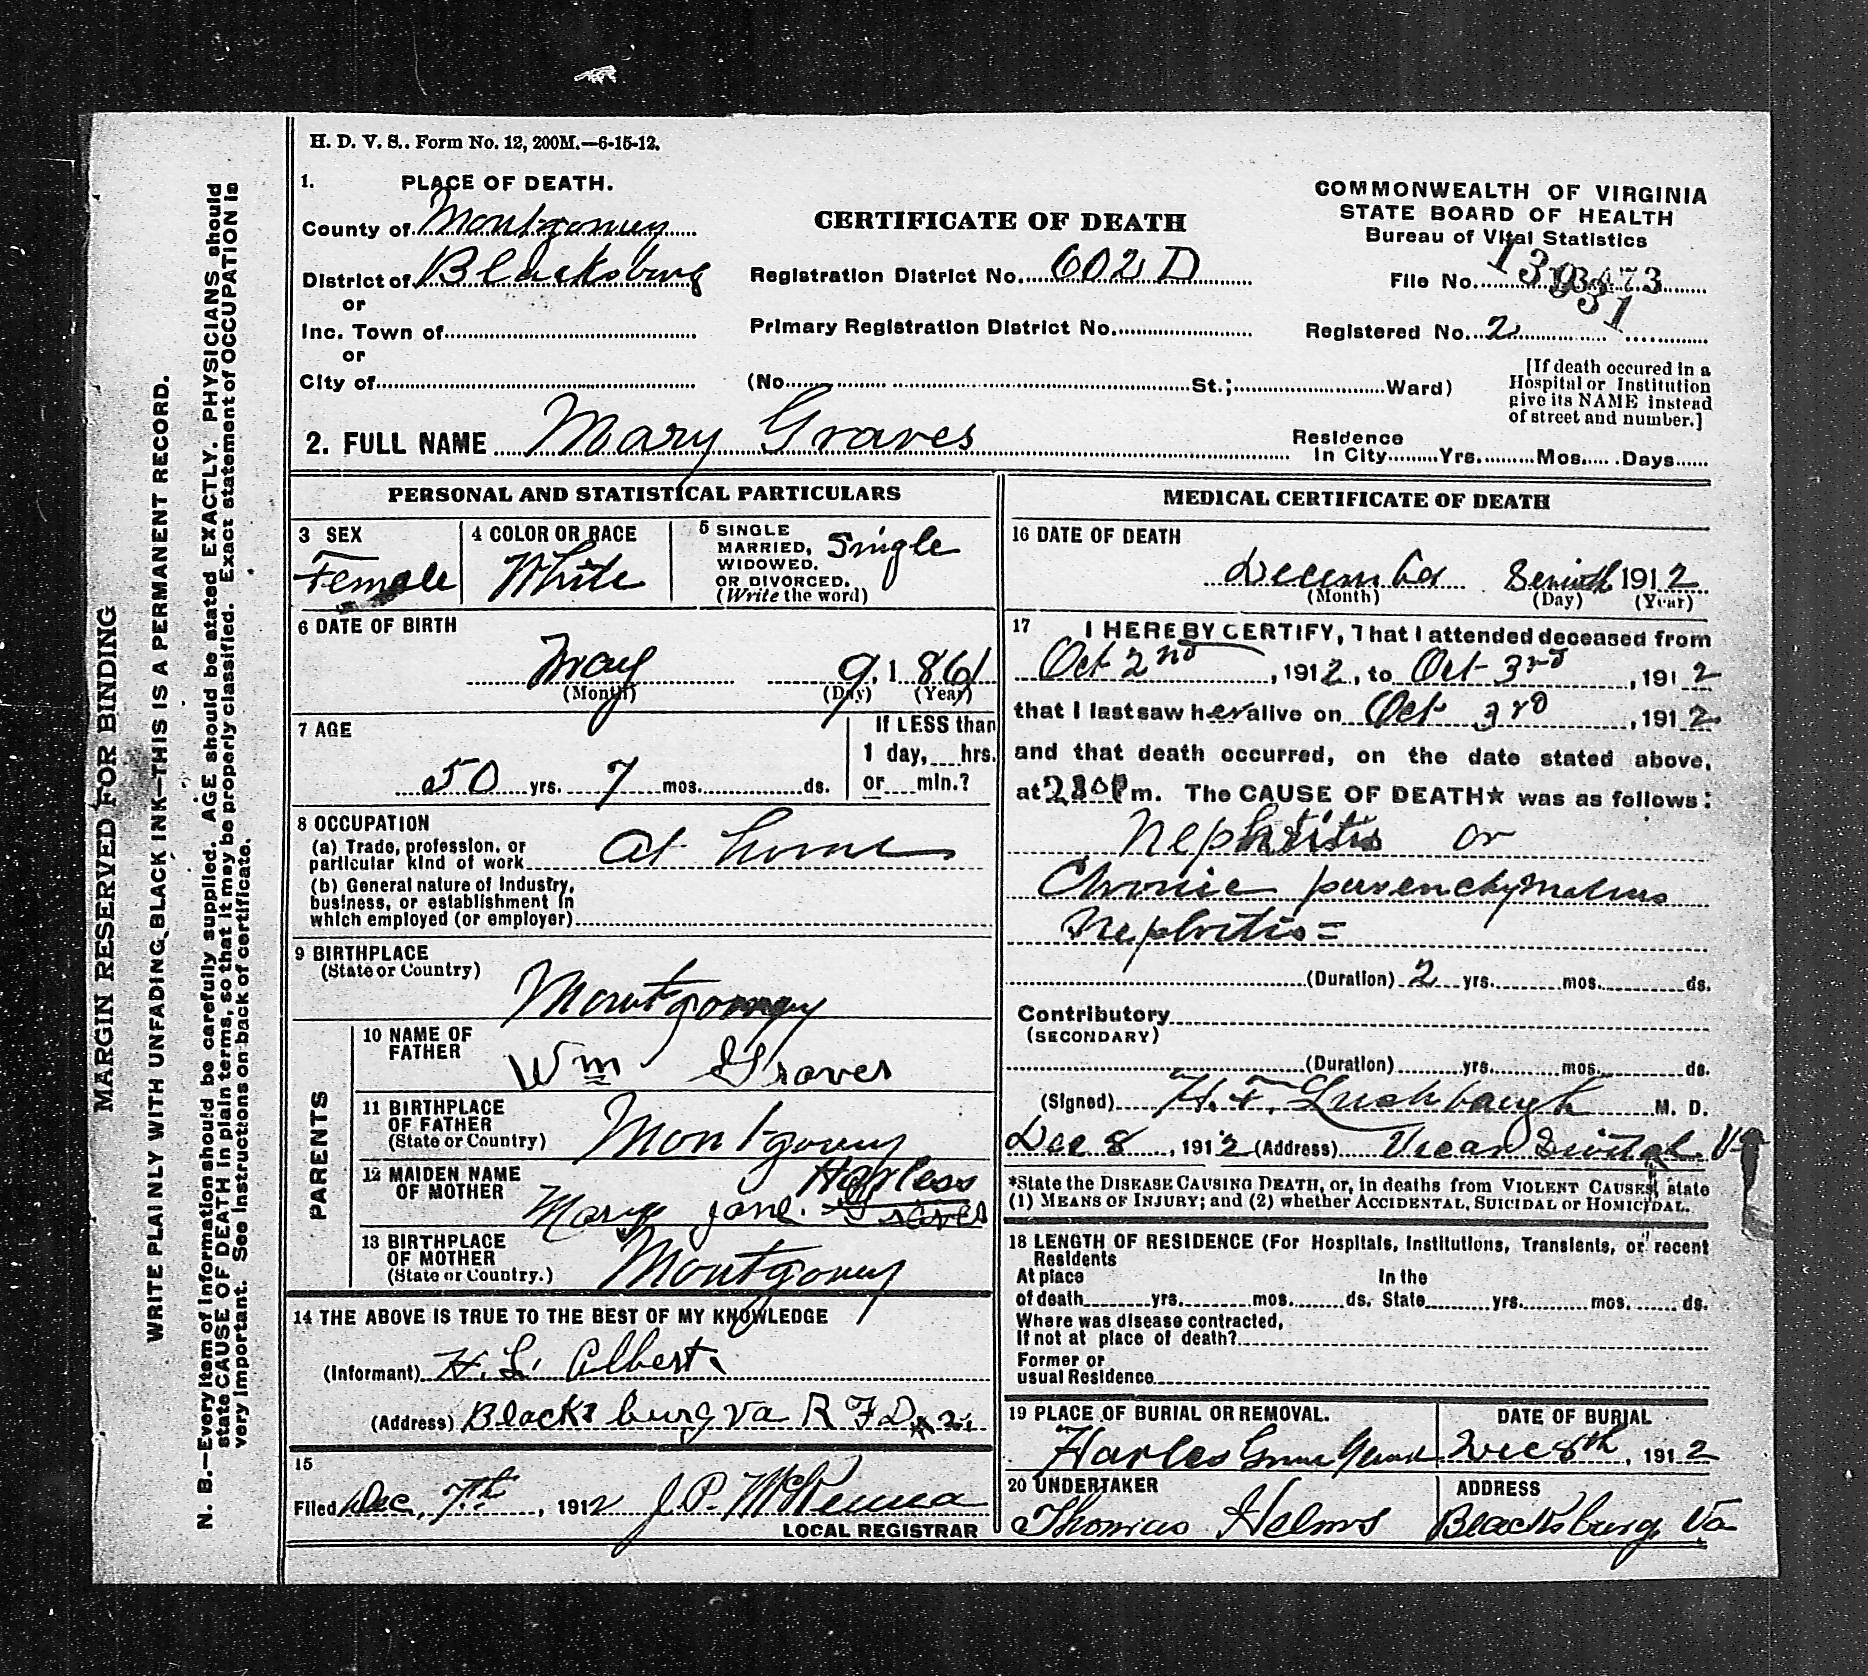 H. D. V. S.. Form No. 12, 200M.—6-15-12.
1. PLACE OF DEATH.
County of Montgomery
District of Blacksburg
or
Inc. Town of
or
City of
CERTIFICATE OF DEATH
Registration District No. 602 D
Primary Registration District No.
(No. St.; Ward)
COMMONWEALTH OF VIRGINIA
STATE BOARD OF HEALTH
Bureau of Vital Statistics
File No.
Registered No. 2
[If death occured in a
Hospital or Institution
give its NAME instead
of street and number.]
2. FULL NAME Mary Graves
Residence
In City Yrs. Mos. Days
PERSONAL AND STATISTICAL PARTICULARS
3 SEX
Female
4 COLOR OR RACE
White
5 SINGLE
MARRIED,
WIDOWED.
OR DIVORCED.
(Write the word)
Single
6 DATE OF BIRTH
May 9, 1861
(Month) (Day) (Year)
7 AGE
50 yrs. 7 mos. ds.
If LESS than
1 day, hrs.
or min.?
8 OCCUPATION
(a) Trade, profession, or
particular kind of work At home
(b) General nature of Industry,
business, or establishment in
which employed (or employer)
9 BIRTHPLACE
(State or Country)
Montgomery
PARENTS
10 NAME OF
FATHER
Wm Graves
11 BIRTHPLACE
OF FATHER
(State or Country)
Montgomery
12 MAIDEN NAME
OF MOTHER
Mary Jane. Graves Harless
13 BIRTHPLACE
OF MOTHER
(State or Country.)
Montgomery
14 THE ABOVE IS TRUE TO THE BEST OF MY KNOWLEDGE
(Informant) H. L. Albert
(Address) Blacksburg Va R F D # 2.
15
Filed Dec, 7th, 1912 J. P. McKenna
LOCAL REGISTRAR
MEDICAL CERTIFICATE OF DEATH
16 DATE OF DEATH
December 1912
(Month) (Day) (Year)
17 I HEREBY CERTIFY, That I attended deceased from
Oct 2nd, 1912, to Oct 3rd, 1912
that I last saw her alive on Oct 3rd, 1912
and that death occurred, on the date stated above,
at 230 P m. The CAUSE OF DEATH★ was as follows:
Nephritis or
Chronic parenchymatous
Nephritis=
(Duration) 2 yrs. mos. ds.
Contributory
(SECONDARY)
(Duration) yrs. mos. ds.
(Signed) H. F. M. D.
Dec 8, 1912 (Address) Va
*State the DISEASE CAUSING DEATH, or, in deaths from VIOLENT CAUSES, state
(1) MEANS OF INJURY; and (2) whether ACCIDENTAL, SUICIDAL or HOMICIDAL.
18 LENGTH OF RESIDENCE (For Hospitals, Institutions, Transients, or recent
Residents
At place In the
of death yrs. mos. ds. State yrs. mos. ds.
Where was disease contracted,
If not at place of death?
Former or
usual Residence
19 PLACE OF BURIAL OR REMOVAL.
Harles
DATE OF BURIAL
Dec 8th, 1912
20 UNDERTAKER
Thomas Helms
ADDRESS
Blacksburg Va
MARGIN RESERVED FOR BINDING
WRITE PLAINLY WITH UNFADING BLACK INK—THIS IS A PERMANENT RECORD.
N. B.—Every item of information should be carefully supplied. AGE should be stated EXACTLY. PHYSICIANS should
state CAUSE OF DEATH in plain terms, so that it may be properly classified. Exact statement of OCCUPATION is
very important. See instructions on back of certificate.